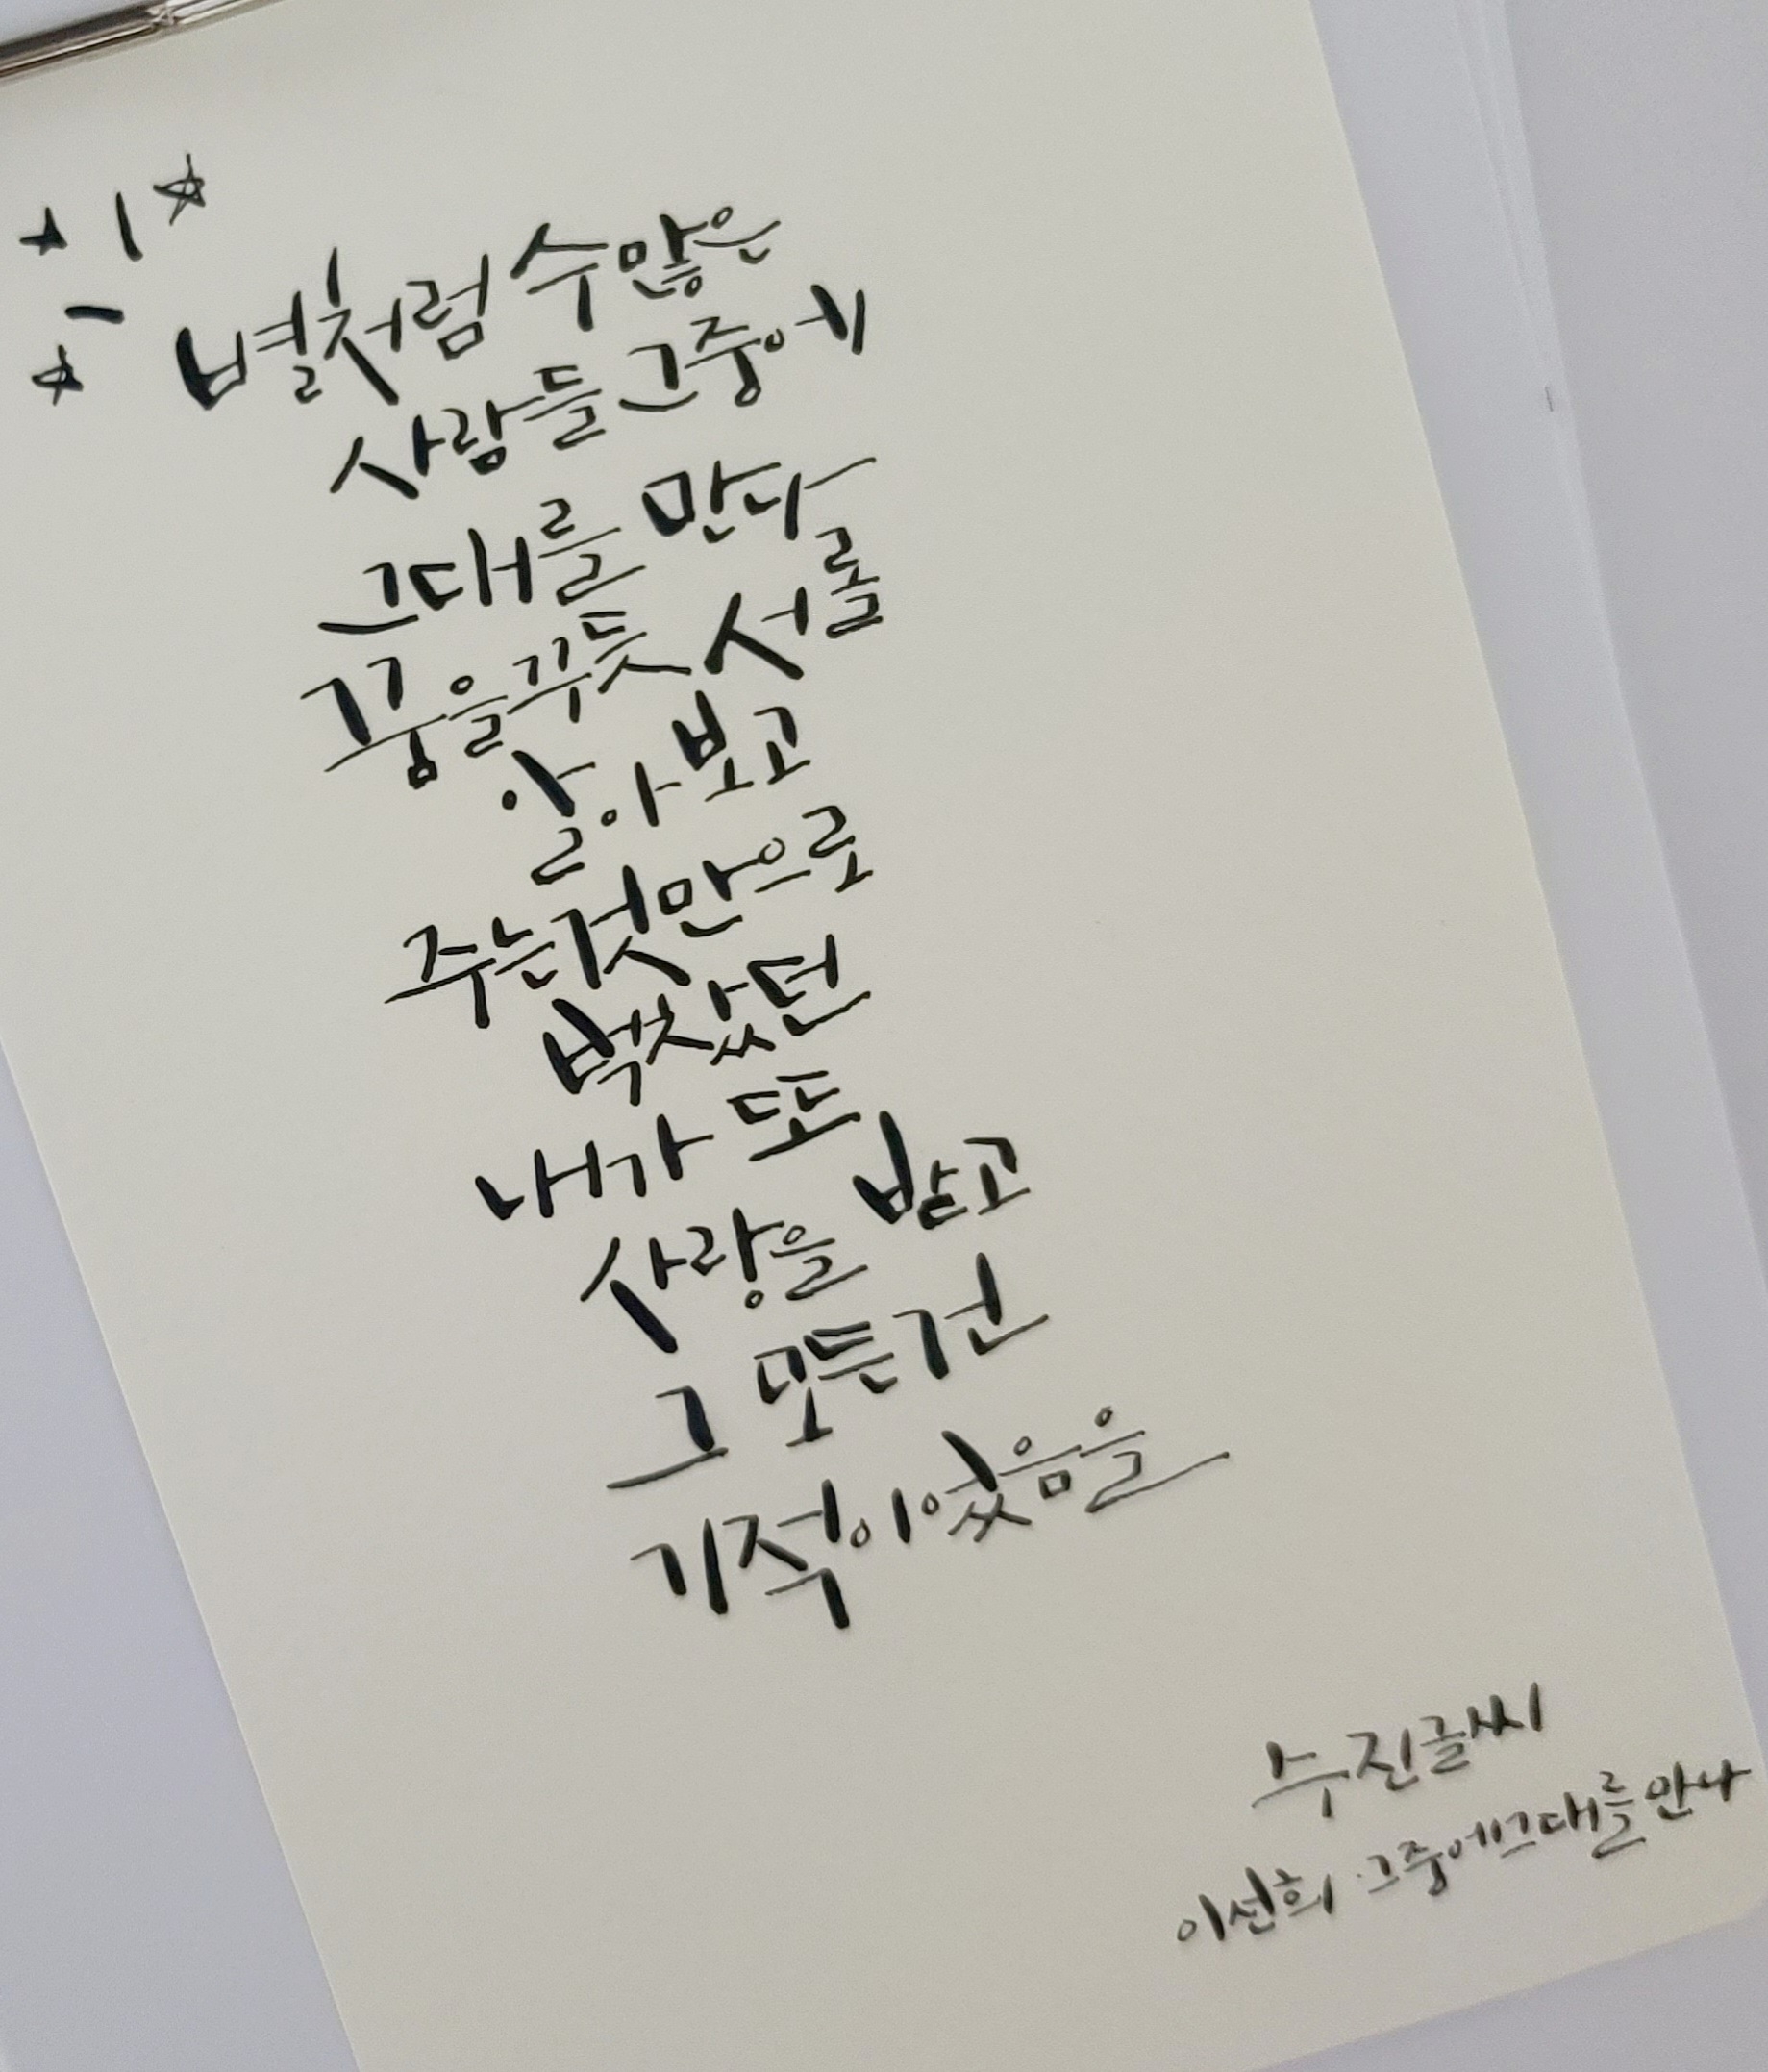 별빛처럼 수많은
사람들 그중에
그대를 만나
꿈을꾸듯 서롤
알아보고
주는것만으로
벅찼던
내가 또
사랑을 받고
그 모든건
기적이었음을
수진글씨
이선희·그중에그대를만나